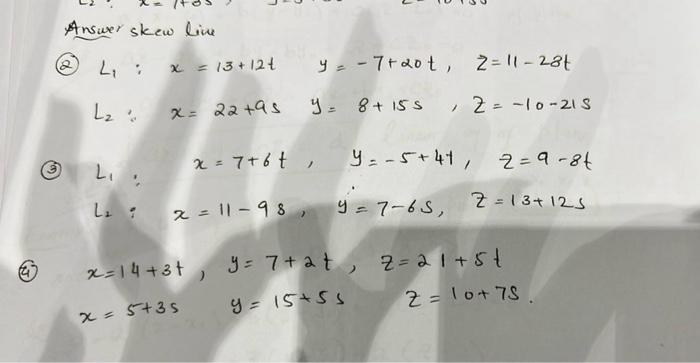 Answer skew line
② L₁ : x = 13+12t y = -7+20t, z = 11-28t
L₂ : x = 22+9s y = 8+15s , z = -10-21s
③ L₁ : x = 7+6t , y = -5+4t , z = 9-8t
L₂ : x = 11-9s , y = 7-6s, z = 13+12s
④ x=14+3t , y= 7+2t , z=21+5t
x = 5+3s y = 15+5s z = 10+7s .